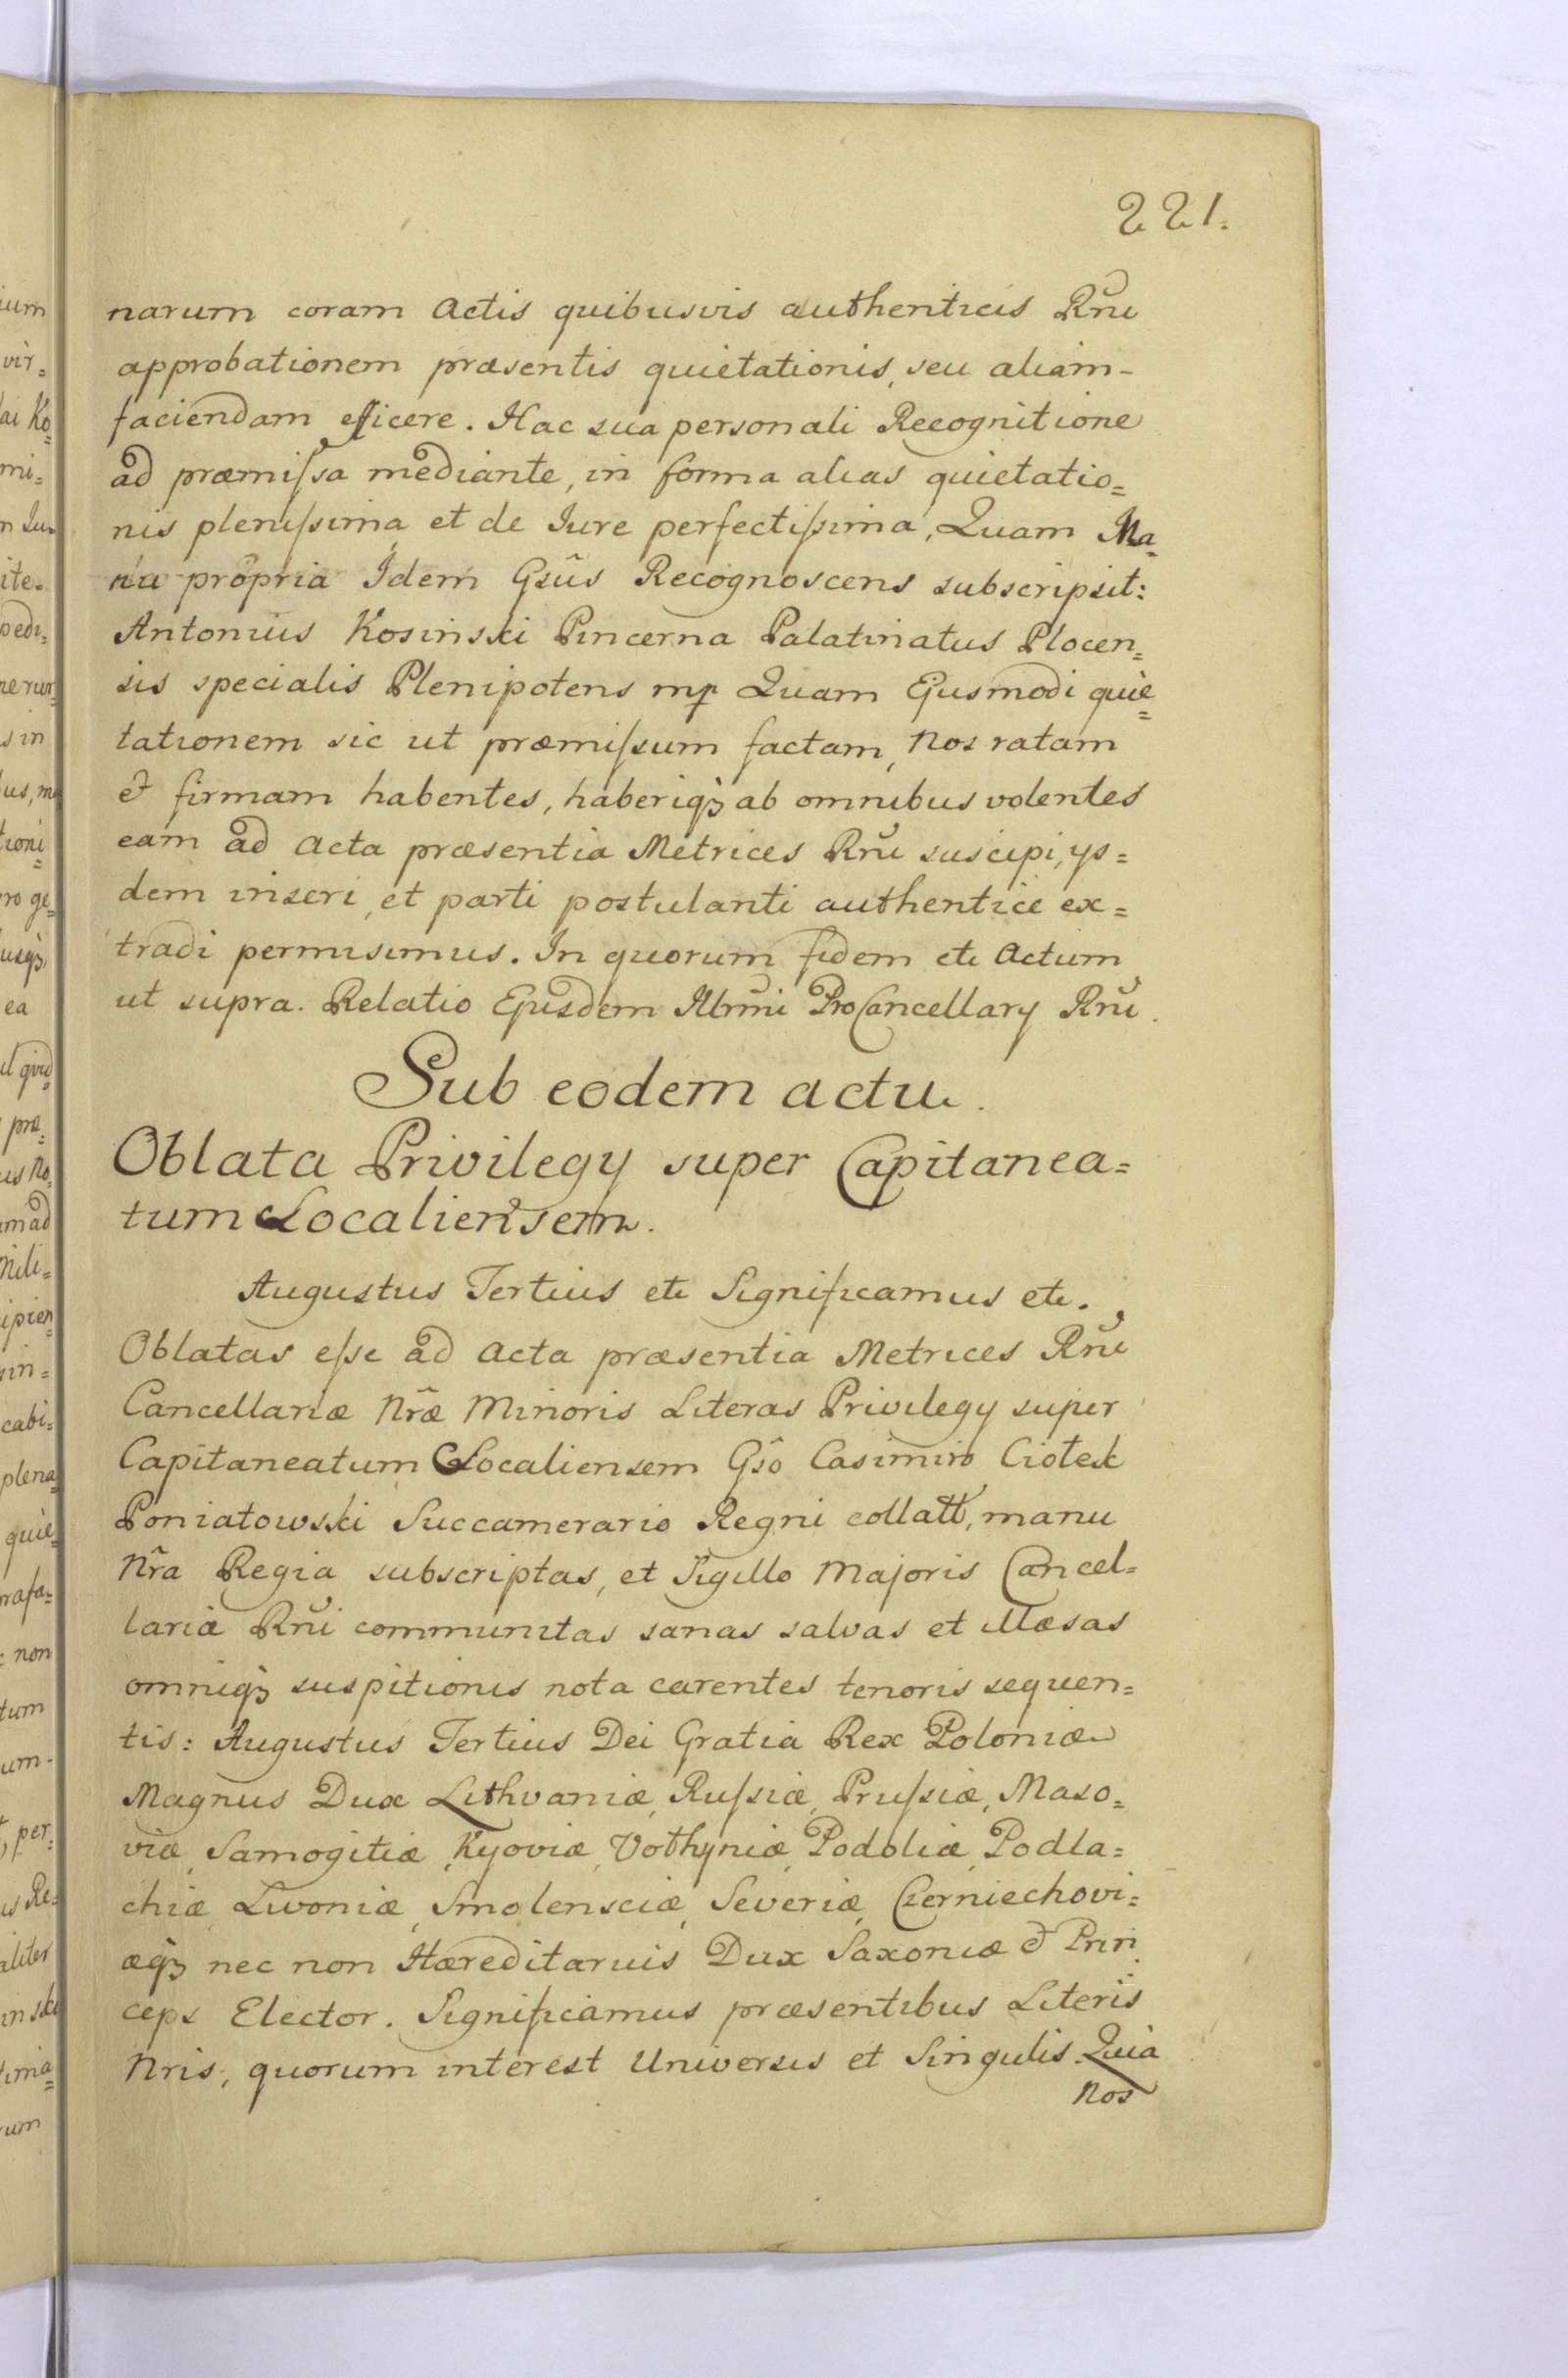 221.
narum coram Actis quibusvis authenticis Rñi
approbationem præsentis quietationis, seu aliam-
faciendam efficere. Hac sua personali Recognitione
ad præmiſsa mediante, in forma alias quietatio=
nis pleniſsima et de Iure perfectiſsima, Quam Ma=
nu propria Idem Gsûs Recognoscens subscripsit:
Antonius Kosinski Pincerna Palatinatus Plocen=
sis specialis Plenipotens mp Quam Ejusmodi quie=
tationem sic ut præmiſsum factam, Nos ratam
et firmam habentes, haberiqȝ ab omnibus volentes
eam ad Acta præsentia Metrices Rñi suscipi, ys=
dem inseri, et parti postulanti authentice ex=
tradi permisimus. In quorum fidem etc Actum
ut supra. Relatio Ejusdem Illrmi ProCancellary Rñi.
Sub eodem actu.
Oblata Privilegy super Capitanea=
tum Localiensem.
Augustus Tertius etc Significamus etc.
Oblatas eſse ad Acta præsentia Metrices Rñi
Cancellariæ Nr̃æ Minoris Literas Privilegy super
Capitaneatum Localiensem Gsô Casimiro Ciołek
Poniatowski Succamerario Regni collatt, manu
Nr̃a Regia subscriptas, et Sigillo Majoris Cancel=
lariæ Rñi communitas sanas salvas et illæsas
omniqȝ suspitionis nota carentes tenoris sequen=
tis: Augustus Tertius Dei Gratia Rex Poloniæ
Magnus Dux Lithvaniæ, Ruſsiæ, Pruſsiæ, Maso=
viæ, Samogitiæ, Kyoviæ, Volhyniæ, Podoliæ, Podla=
chiæ Livoniæ, Smolensciæ, Severiæ, Czerniechovi=
æqȝ nec non Hæreditarius Dux Saxoniæ et Prin
ceps Elector. Significamus præsentibus Literis
Nris, quorum interest Universis et Singulis. Quia
Nos